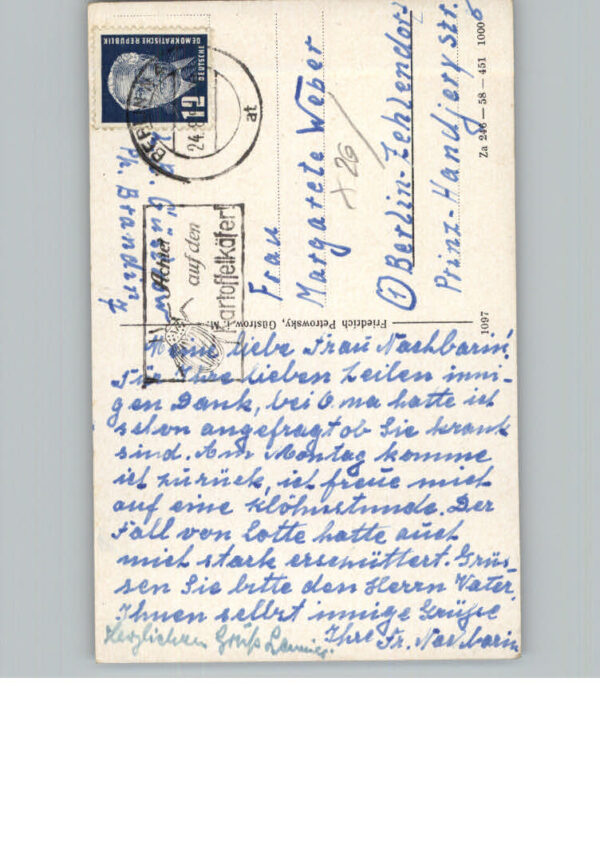 DEUTSCHE
DEMOKRATISCHE REPUBLIK
12
BERLIN
24.8
at
Achtet
auf den
Kartoffelkäfer!
Frau
Margarete Weber
x 26
1 Berlin-Zehlendorf
Prinz-Handjery str. 6
Za 246 — 58 — 451 1000
Friedrich Petrowsky, Güstrow i. M.
1097
Meine liebe Frau Nachbarin!
Für Ihre lieben Zeilen inni-
gen Dank, bei Oma hatte ich
schon angefragt ob Sie krank
sind. Am Montag komme
ich zurück, ich freue mich
auf eine Klöhnstunde. Der
Fall von Lotte hatte auch
mich stark erschüttert. Grüs-
sen Sie bitte den Herrn Vater,
Ihnen selbst innige Grüße
Ihre Fr. Nachbarin
Herzlichen Gruß